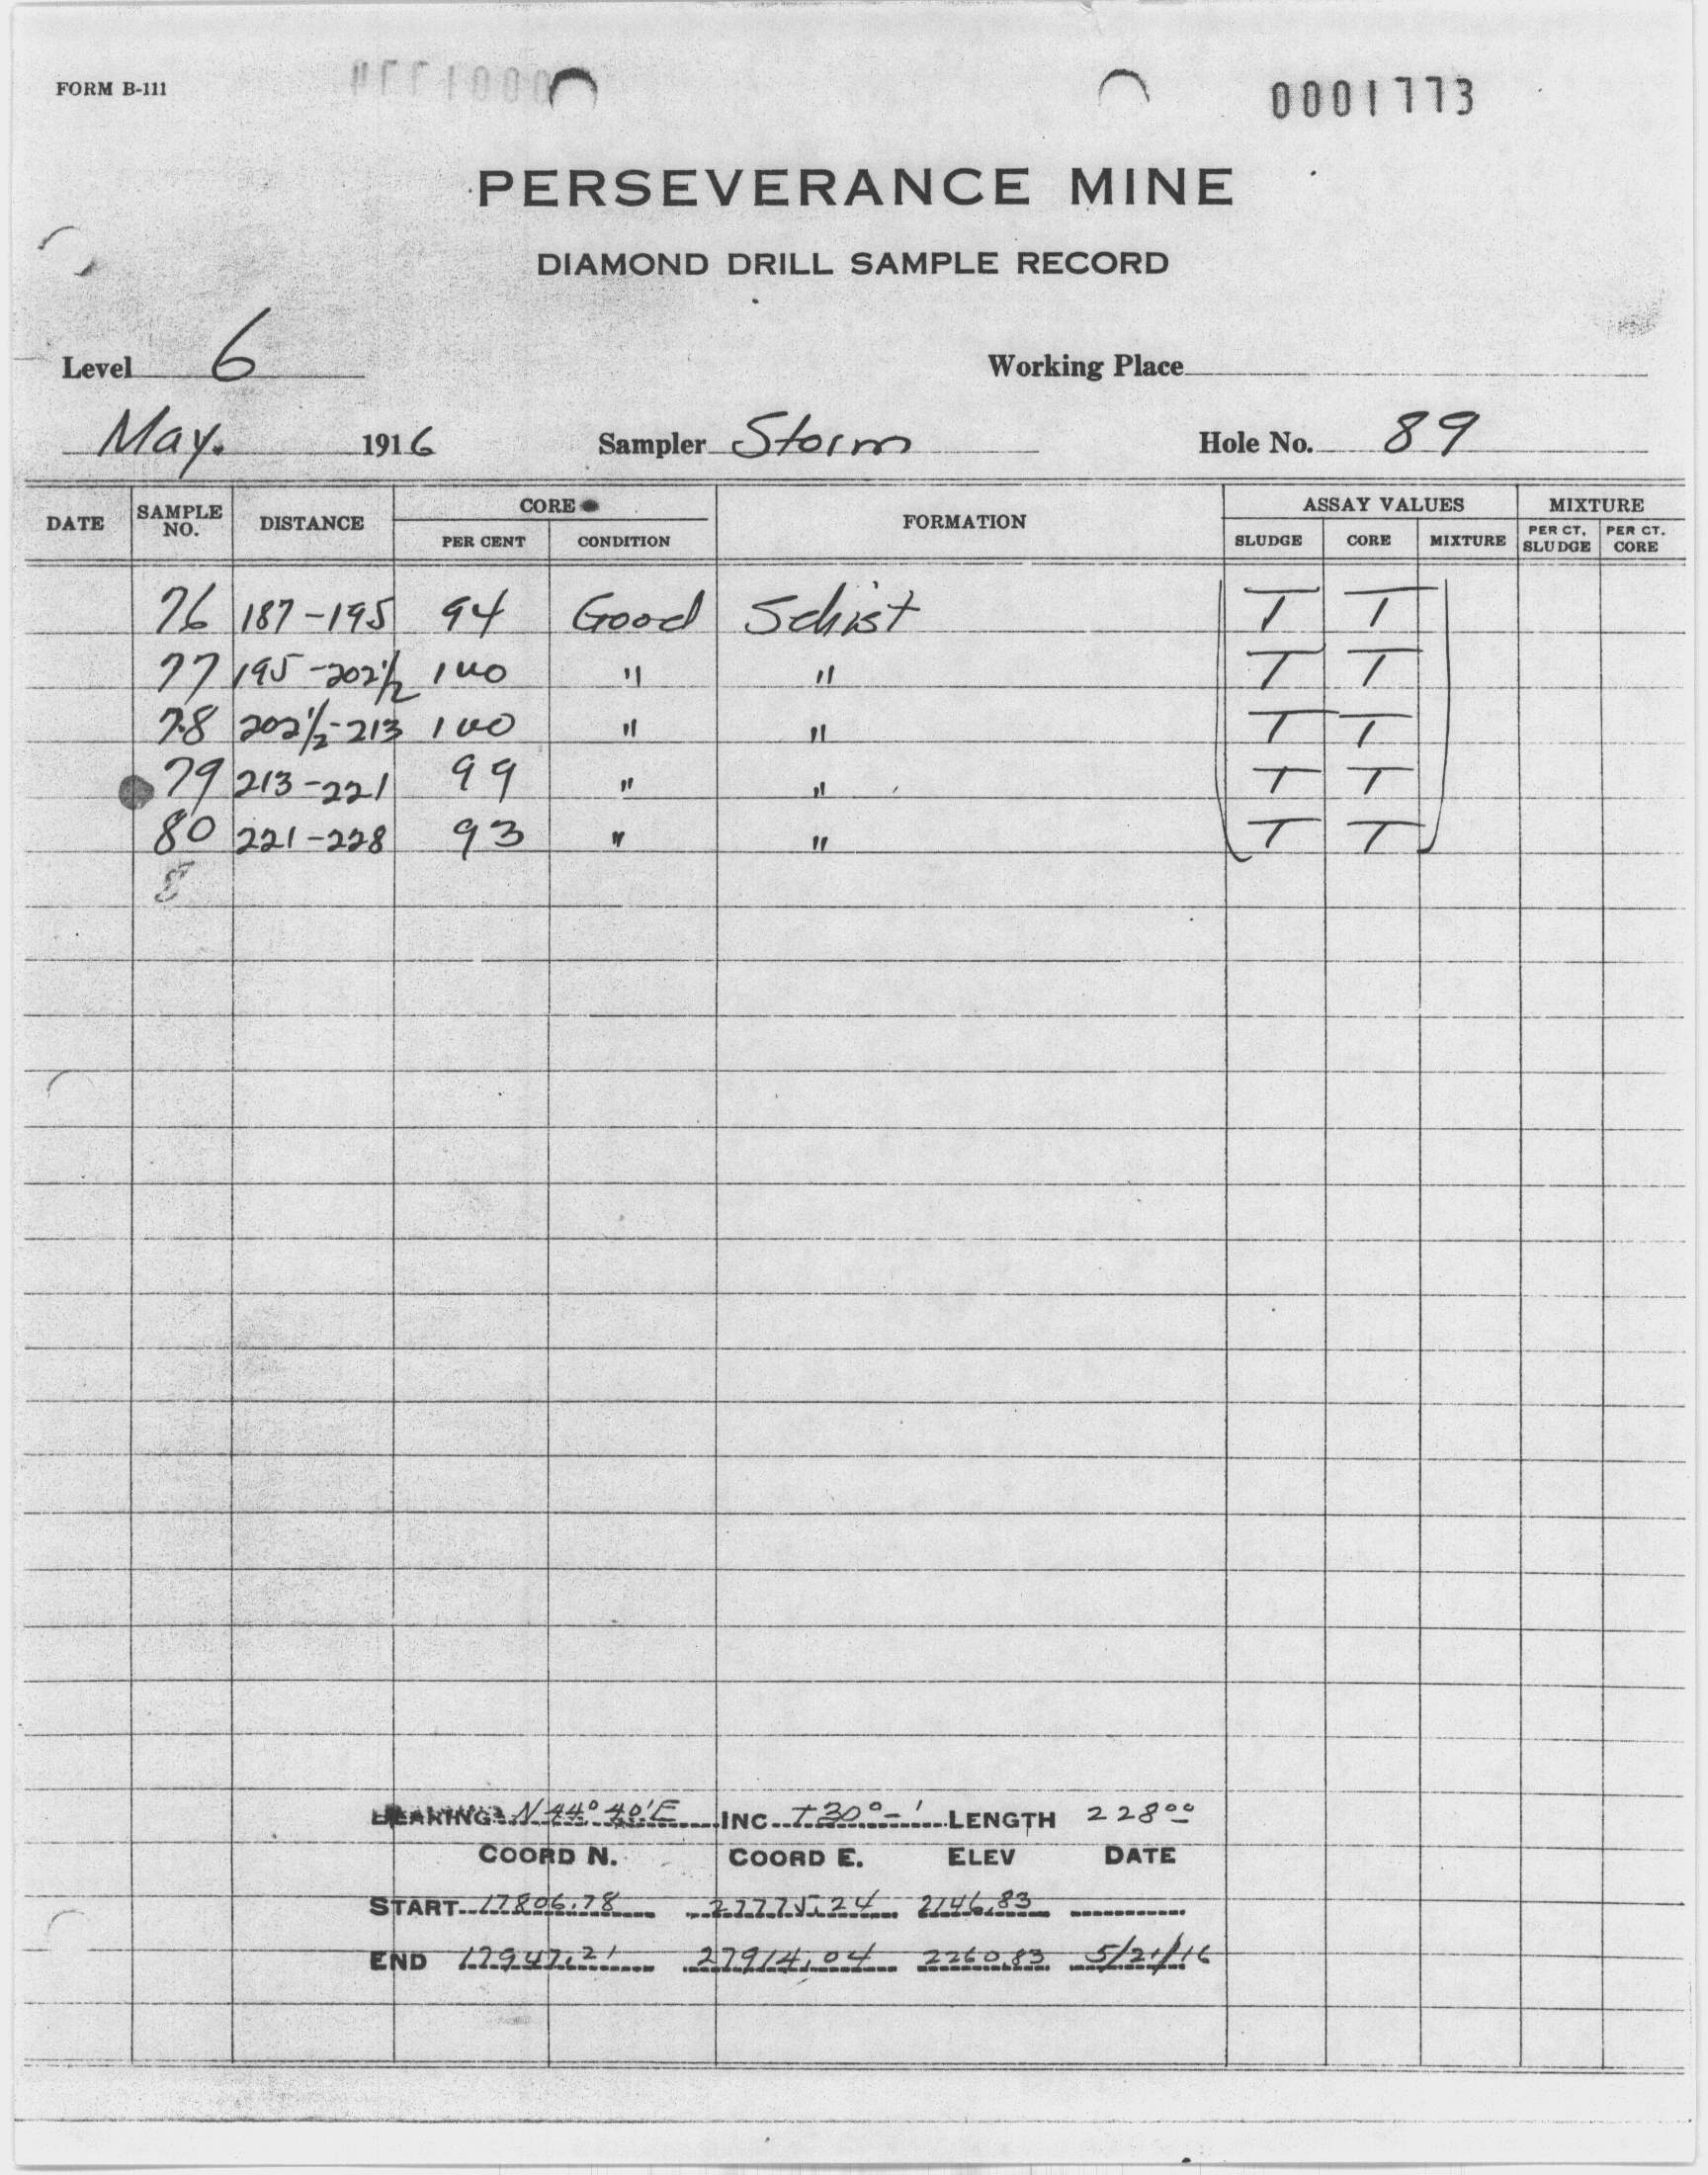 FORM B-111
0001773
PERSEVERANCE MINE
DIAMOND DRILL SAMPLE RECORD
Level 6 Working Place
May. 1916 Sampler Storm Hole No. 89
DATE SAMPLE NO. DISTANCE CORE PER CENT CONDITION FORMATION ASSAY VALUES SLUDGE CORE MIXTURE MIXTURE PER CT. SLUDGE PER CT. CORE
76 187-195 94 Good Schist T T
77 195-202 1/2 100 " " T T
78 202 1/2-213 100 " " T T
79 213-221 99 " " T T
80 221-228 93 " " T T
8
BEARING N 44° 40' E INC +30° - ' LENGTH 228 00
COORD N. COORD E. ELEV DATE
START 17806.78 27775.24 2146.83
END 17947.21 27914.04 2260.83 5/21/16